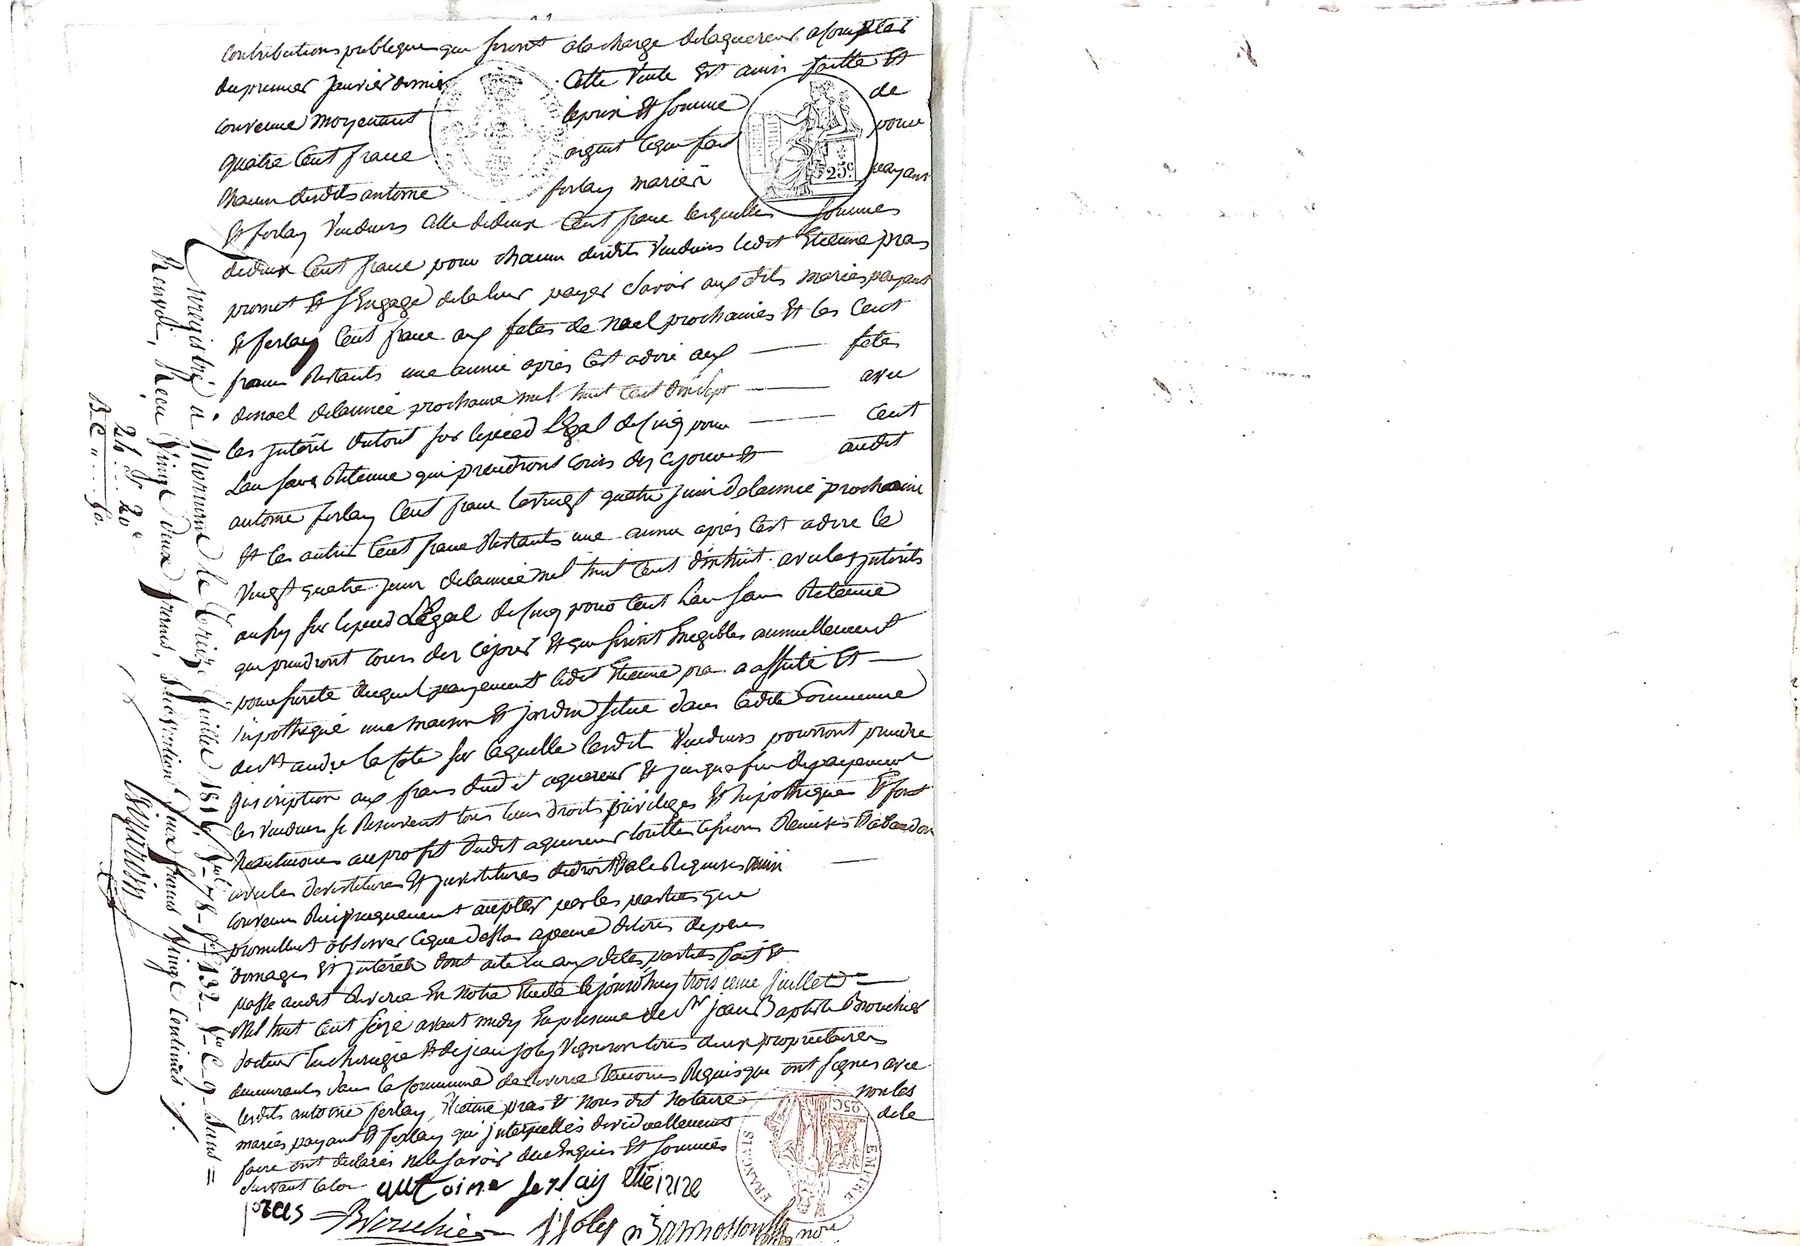 contributions publiques qui seront a la charge de laquereur a compter
du premier janvier dernier Cette Vente Est ainsi faitte Et
convenue moyenant le prix Et somme de
quatre Cent franc argent lequel fait pour
chacun desdits antoine ferlay mariés payant
Et ferlay Vendeurs Celle de deux Cent franc lesquelles sommes
de deux Cent franc pour chacun desdits Vendeurs ledit Etienne pras
promet Et sEngage de la leur payer savoir aux dits mariés payant
Et ferlay Cent franc aux fetes de noel prochaines Et les Cent
francs Restants une année apres Cest adire aux fetes
de noel de lannée prochaine mil huit Cent dix sept avec
les jnterêts du tout sur le pied LEgal de Cinq pour Cent
Lan sans Retenue qui prendront cours des ce jour Et audit
antoine ferlay Cent franc le vingt quatre juin de lannée prochaine
Et les autres Cent franc Restants une année apres Cest adire le
Vingt quatre juin de lannée mil huit Cent dix huit avec les jnterêts
aussy sur le pied LEgal de Cinq pour Cent Lan sans Retenue
qui prendront cours des ce jour Et qui seront Exigibles annuellement
pour sureté duquel payement ledit Etienne pras a affecté Et
hipothequé une maison Et jardin situé dans ladite Commune
de st andré la Cote sur laquelle lesdits Vendeurs pourront prendre
jnscription aux frais dudit aquereur Et jusqua fin de payement
les Vendeurs se Reservent tous leurs droits privileges Et hipotheques Et font
neantmoins au profit dudit aquereur touttes Cessions Remises Et abandon
avec les devestitures Et jnvestitures de droit Et de Requises ainsi
convenu Reciproquement accepter par les parties qui
promettent observer ce que dessus a peine de tous depens
domages Et jnterêts dont acte lu aux dites parties fait Et
passé audit Riverie En notre Etude le jourdhuy trois ieme juillet
Mil huit Cent seize avant midy En presence de sr jean Baptiste Brouchier
docteur En chirurgie Et de jean joly Vigneron tous deux proprietaires
demeurants dans la Commune de Riverie temoins Requis qui ont signés avec
lesdits antoine ferlay, Etienne pras Et Nous dit Notaire non les
mariés payant Et ferlay qui jnterpellés dividuellement de le
faire ont declarés ne le savoir de ce Enquis Et sommés
suivant la loi antoine ferlay etie
pras Brouchier J Joly
nore
25c
EMPIRE FRANÇAIS
25C
Enregistré à Mornant le treize juillet 1816 fol. 78 Ro 132 Vo C. 9 Sans
Renvoi, Reçu Vingt deux francs, Subvention deux francs Vingt Centimes
24 f 20 c
B. C. .... 50.